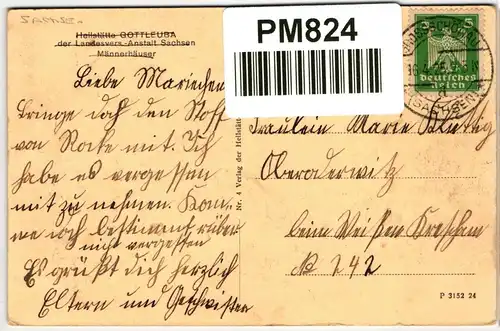 SACHSEN.
Heilstätte GOTTLEUBA
der Landesvers.-Anstalt Sachsen
Männerhäuser
PM824
5 5
Deutsches
Reich
(SACHSEN)
Liebe Mariechen
Bringe doch den Stoff
von Rocke mit. Ich
habe es vergessen
mit zu nehmen. Kom-
me noch bestimmt rüber
nur vergessen
Es grüßt dich herzlich
Eltern und Geschwister
Nr. 4 Verlag der Heilstätte
Fräulein Marie
Oberoderwitz
beim Weißen Kretscham
№ 242
P 3152 24